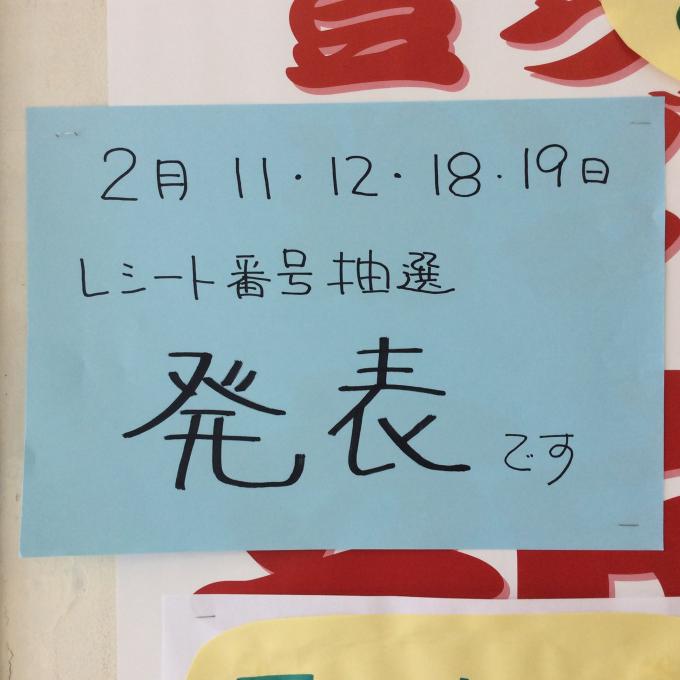 2月 11・12・18・19日
レシート番号抽選
発表です